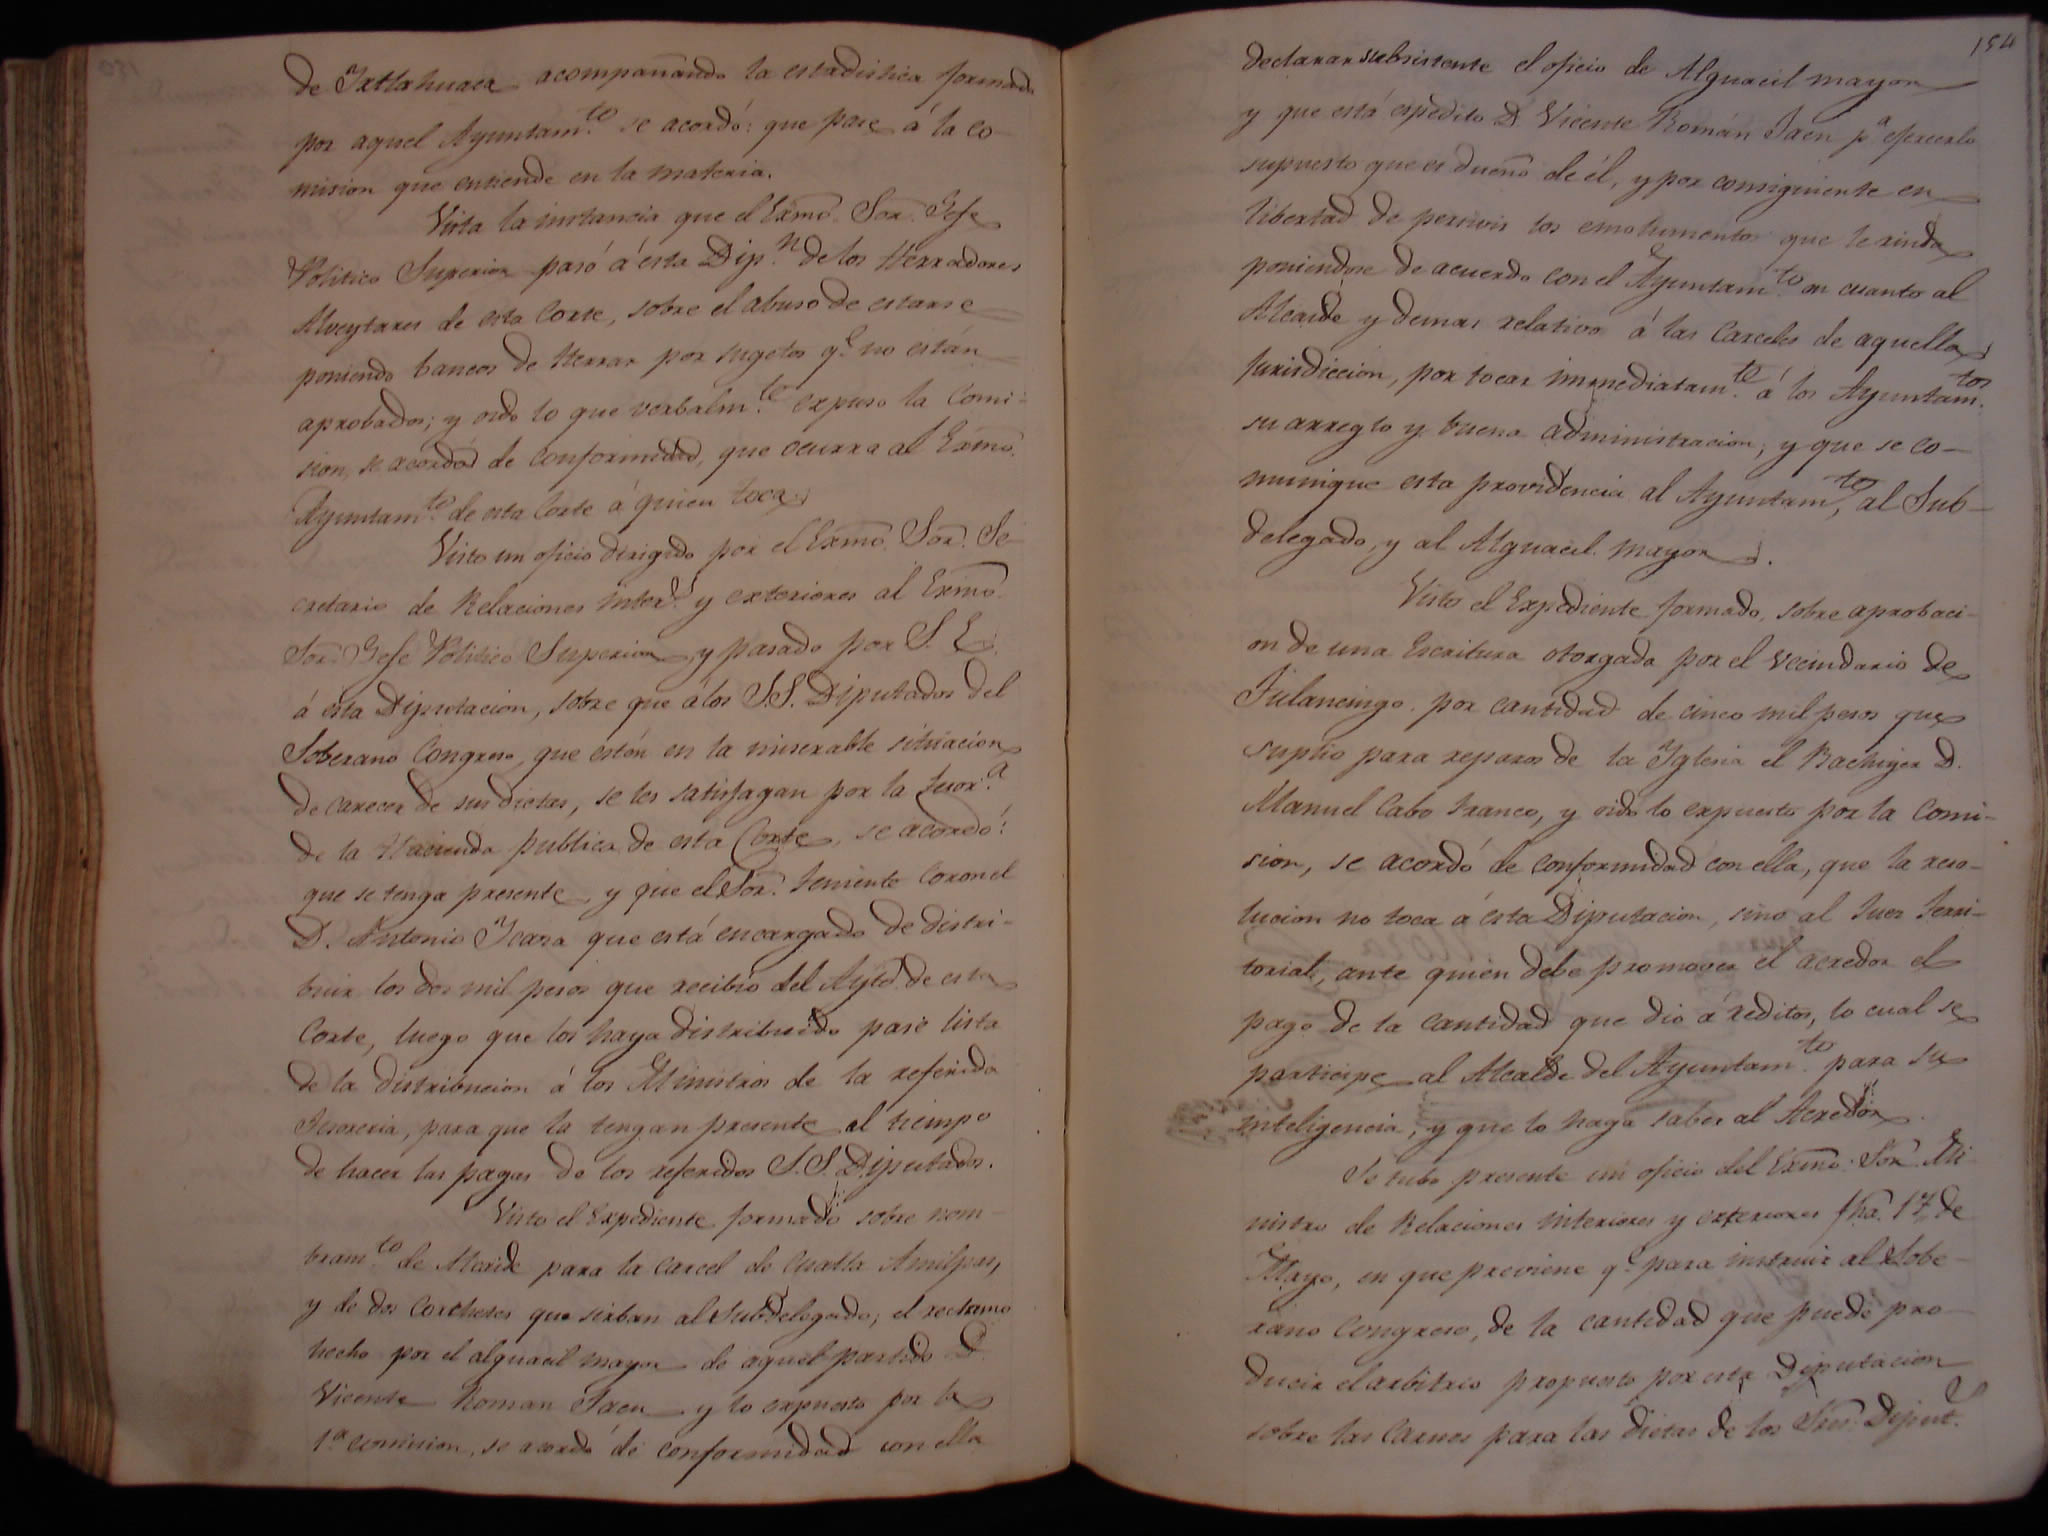 de Ixtlahuaca acompañando la estadistica formada
por aquel Ayuntam.to se acordó: que pase á la co-
mision que entiende en la materia.
Vista la instancia que el Exmo. Sor. Gefe
Politico Superior pasó á esta Dip.n de los Herradores
Alveytares de esta Corte, sobre el abuso de estarse
poniendo bancos de Herrar por sugetos q.e no están
aprobados; y oido lo que verbalm.te expuso la Comi-
sion, se acordó de conformidad, que ocurra al Exmo.
Ayuntam.to de esta Corte á quien toca.
Visto un oficio dirigido por el Exmo. Sor. Se-
cretario de Relaciones inter.s y exteriores al Exmo.
Sor. Gefe Politico Superior, y pasado por S. E.
á esta Diputacion, sobre que á los S.S. Diputados del
Soberano Congreso, que estén en la miserable situacion
de carecer de sus dietas, se les satisfagan por la tesor.a
de la Hacienda publica de esta Corte, se acordó:
que se tenga presente, y que el Sor. teniente Coronel
D. Antonio Icaza que está encargado de distri-
buir los dos mil pesos que recibió del Ayto. de esta
Corte, luego que los haya distribuido pase lista
de la distribucion á los Ministros de la referida
Tesoreria, para que la tengan presente al tiempo
de hacer las pagas de los referidos S.S. Diputados.
Visto el Expediente formado sobre nom-
bram.to de Alcaide para la carcel de Cuatla Amilpas,
y de dos Corchetes que sirban al Subdelegado; el reclamo
hecho por el alguacil mayor de aquel partido D.
Vicente Roman Jaen y lo expuesto por la
1.a comision, se acordó de conformidad con ella
154
declarar subsistente el oficio de Alguacil mayor
y que está expedito D. Vicente Román Jaen p.a ejercerlo
supuesto que es dueño de él, y por consiguiente en
libertad de percivir los emolumentos que le rinda
poniendose de acuerdo con el Ayuntam.to en cuanto al
Alcaide y demas relativo á las Carceles de aquella
jurisdiccion, por tocar immediatam.te á los Ayuntam.tos
su arreglo y buena administracion; y que se co-
munique esta providencia al Ayuntam.to, al Sub-
delegado, y al Alguacil mayor.
Visto el Expediente formado, sobre aprobaci-
on de una Escritura otorgada por el vecindario de
Tulancingo por cantidad de cinco mil pesos que
suplió para reparos de la Iglesia el Bachiyer D.
Manuel Cabo franco, y oido lo expuesto por la Comi-
sion, se acordó de conformidad con ella, que la reso-
lucion no toca á esta Diputacion, sino al Juez terri-
torial, ante quien debe promover el acredor el
pago de la cantidad que dió á reditos, lo cual se
participe al Alcalde del Ayuntam.to para su
inteligencia, y que lo haga saber al Acredor.
Se tubo presente un oficio del Exmo. Sor. Mi-
nistro de Relaciones interiores y exteriores fha. 17 de
Mayo, en que previene q.e para instruir al Sobe-
rano Congreso, de la cantidad que puede pro-
ducir el arbitrio propuesto por esta Diputacion
sobre las Carnes para las dietas de los Sres. Diput.s